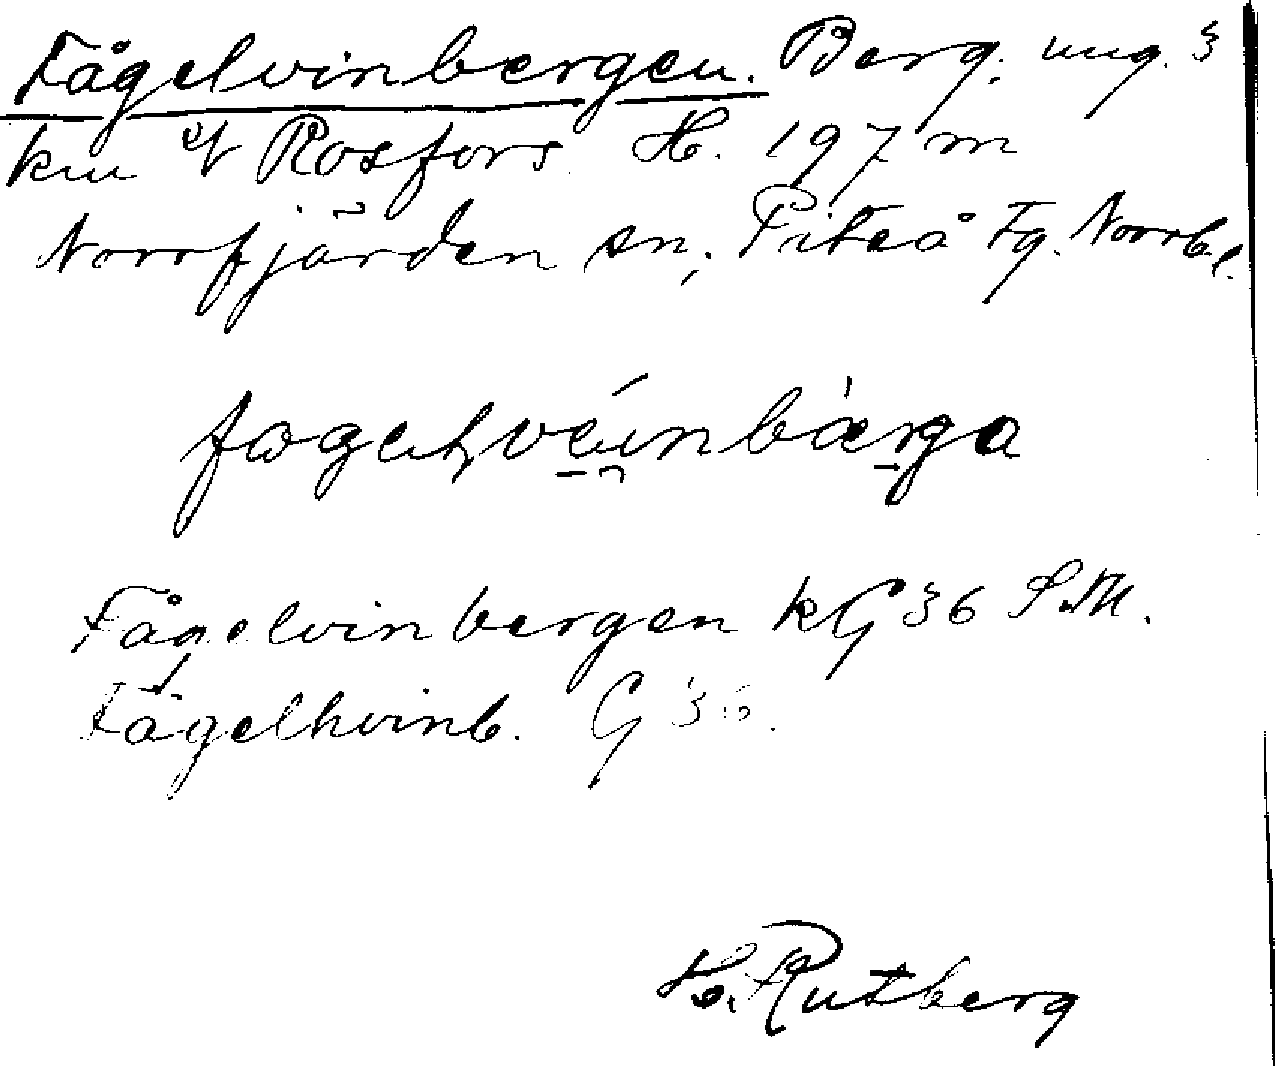 Fågelvinbergen. Berg. ung. 3
km Rosfors H. 197 m
Norrfjärden sn, Piteå Tg. Norrb l.
Fågelvinbergen kG 36 S.M.
Fågelhvinb. G 36.
H. Rutberg